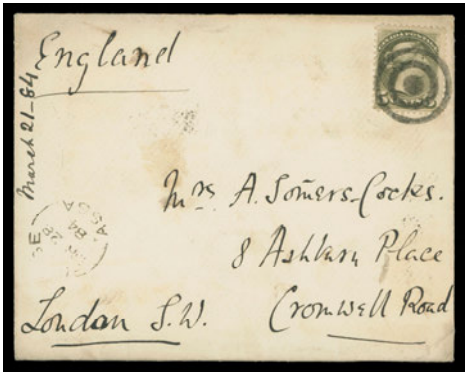 England
March 21-84
Mrs. A. Somers-Cocks.
8 Ashburn Place
Cromwell Road
London S.W.
84